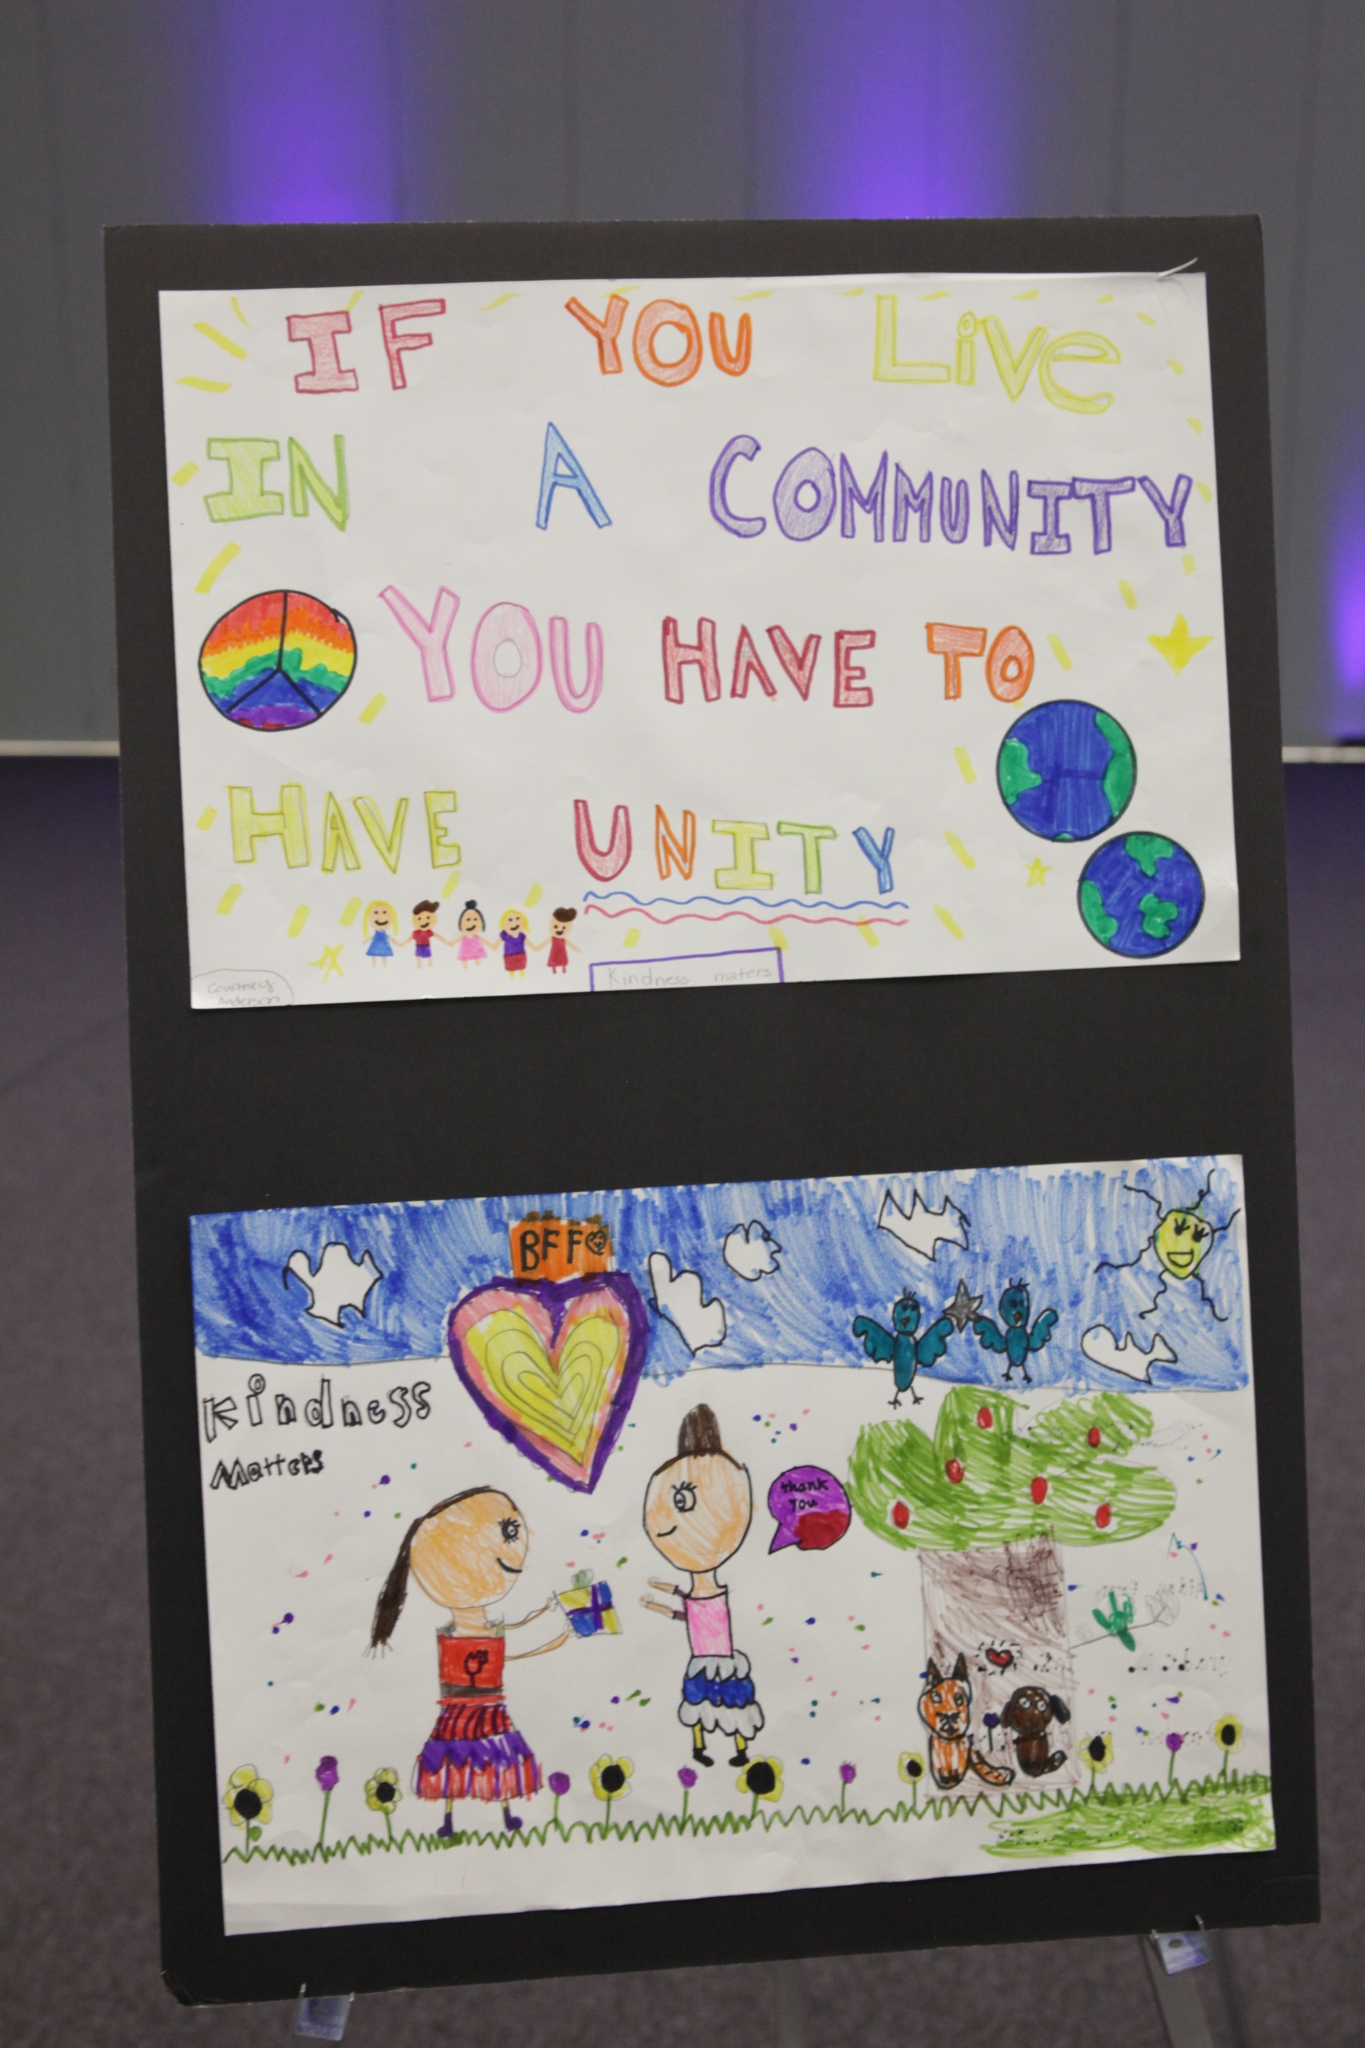 IF YOU Live
IN A COMMUNITY
YOU HAVE TO
HAVE UNITY
Kindness maters
Courtney
Anderson
BFF
Kindness
Matters
thank
you